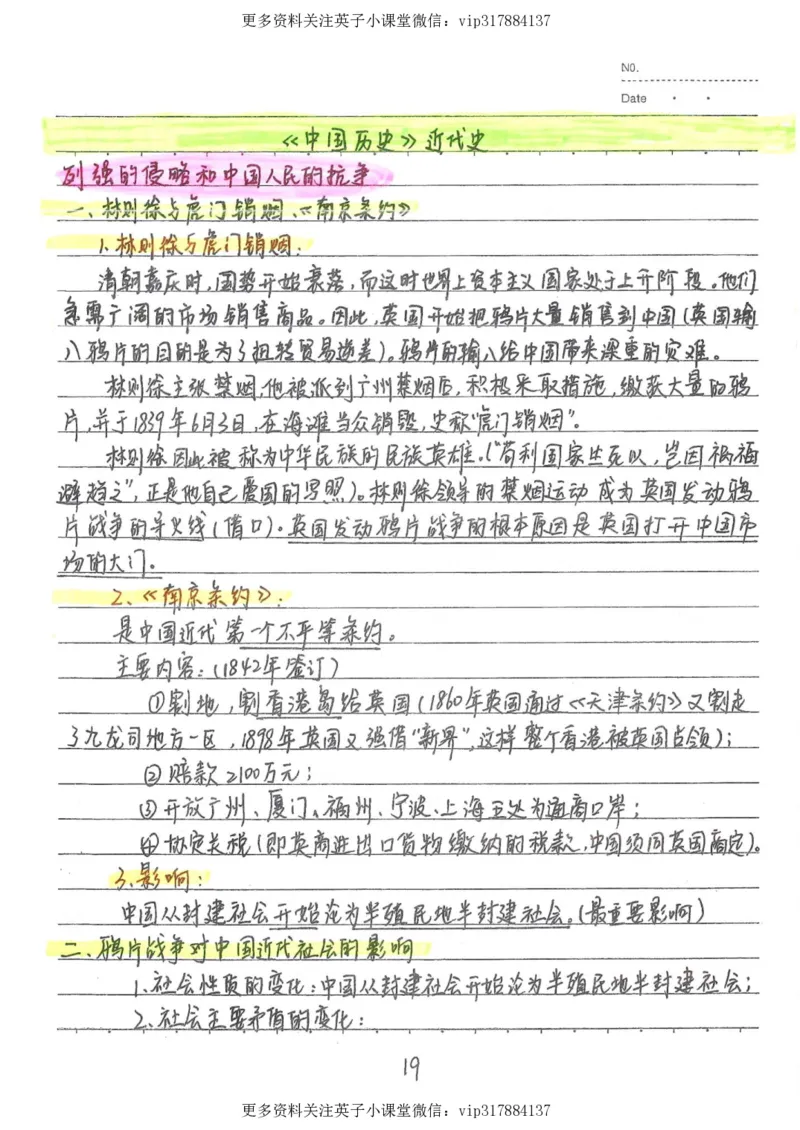 更多资料关注英子小课堂微信：vip317884137
NO.
Date
《中国历史》近代史
列强的侵略和中国人民的抗争
一、林则徐与虎门销烟、《南京条约》
1.林则徐与虎门销烟：
清朝嘉庆时，国势开始衰落，而这时世界上资本主义国家处于上升阶段。他们
急需广阔的市场销售商品。因此，英国开始把鸦片大量销售到中国（英国输
入鸦片的目的是为了扭转贸易逆差）。鸦片的输入给中国带来深重的灾难。
林则徐主张禁烟，他被派到广州禁烟后，积极采取措施，缴获大量的鸦
片，并于1839年6月3日，在海滩当众销毁，史称“虎门销烟”。
林则徐因此被称为中华民族的民族英雄。（“苟利国家生死以，岂因祸福
避趋之”，正是他自己爱国的写照）。林则徐领导的禁烟运动成为英国发动鸦
片战争的导火线（借口）。英国发动鸦片战争的根本原因是英国打开中国市
场的大门。
2、《南京条约》：
是中国近代第一个不平等条约。
主要内容：（1842年签订）
①割地，割香港岛给英国（1860年英国通过《天津条约》又割走
了九龙司地方一区，1898年英国又强借“新界”，这样整个香港被英国占领）；
②赔款2100万元；
③开放广州、厦门、福州、宁波、上海五处为通商口岸；
④协定关税（即英商进出口货物缴纳的税款，中国须同英国商定）。
3.影响：
中国从封建社会开始沦为半殖民地半封建社会。（最重要影响）
二、鸦片战争对中国近代社会的影响
1、社会性质的变化：中国从封建社会开始沦为半殖民地半封建社会；
2、社会主要矛盾的变化：
19
更多资料关注英子小课堂微信：vip317884137